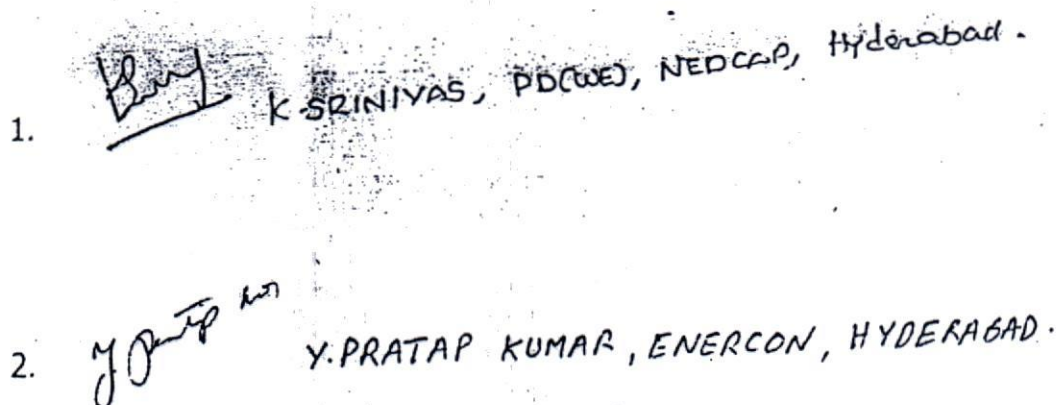 1. K. SRINIVAS, PD(WE), NEDCAP, Hyderabad.
2. Y Pratap Y. PRATAP KUMAR, ENERCON, HYDERABAD.